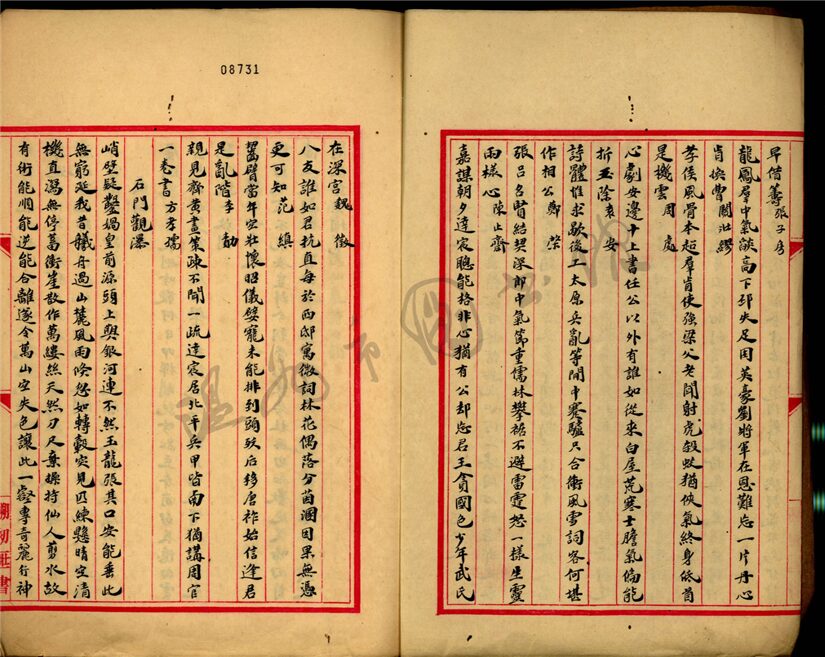 早借籌張子房
龍鳳羣中氣談高下邳失足困英豪劉將軍在恩難忘一片丹心
肯換曹關壯繆
孝侯風骨本超羣肯使強梁父老聞射虎殺蛟猶俠氣終身低首
是機雲周處
心劇安邊十上書任公以外有誰如從來白屋荒寒士膽氣偏能
折玉除袁安
詩體惟求歇後工太原兵亂等閒中蹇驢只合衝風雪詞客何堪
作相公鄭綮
張呂名賢紹契深郎中氣節重儒林攀裾不避雷霆怒一樣生靈
兩樣心陳止齋
嘉謀朝夕達宸聰能格非心猶有公却忘君王貪國色少年武氏
08731
在深宮魏徵
八友誰如君抗直每於西邸寓微詞林花偶落分茵溷因果無憑
更可知范縝
齧臂當年空壯懷昭儀嬖寵未能排到頭歿后移唐祚始信逢君
是亂階李勣
親見齊黃畫策疎不聞一疏達宸居北平兵甲皆南下猶講周官
一卷書方孝孺
石門觀瀑
峭壁疑鑿媧皇前源頭上與銀河連不然玉龍張其口安能垂此
無窮延我昔艤舟過山麓風雨喧怱如轉轂突見匹練懸晴空清
機直瀉無停蓄衝崖散作萬縷絲天然刀尺棄操持仙人剪水故
有術能順能逆能合離遂令萬山空失色讓此一壑專奇麗行神
溫州市圖書館